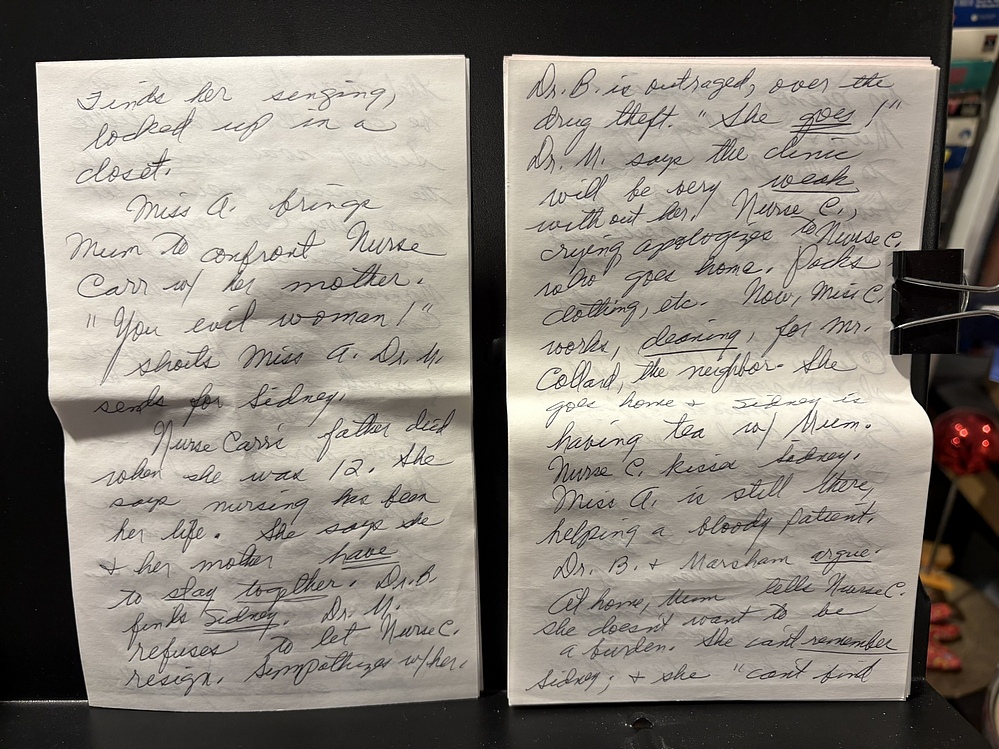 Finds her singing,
locked up in a
closet.
Miss A. brings
Mum to confront Nurse
Carr w/ her mother.
"You evil woman!"
shouts Miss A. Dr. M.
sends for Sidney.
Nurse Carr's father died
when she was 12. She
says nursing has been
her life. She says she
& her mother have
to stay together. Dr. B.
finds Sidney. Dr. M.
refuses to let Nurse C.
resign. Simpathizes w/ her.
Dr. B. is outraged, over the
drug theft. "She goes!"
Dr. M. says the clinic
will be very weak
without her. Nurse C.,
crying apologizes to Nurse C.
who goes home. Packs
clothing, etc. Now, Miss C.
works, cleaning, for Mr.
Collard, the neighbor. She
goes home & Sidney is
having tea w/ Mum.
Nurse C. kisses Sidney.
Miss A. is still there,
helping a bloody patient.
Dr. B. & Marsham argue.
At home, Mum tells Nurse C.
she doesn't want to be
a burden. She can't remember
Sidney; & she "can't find